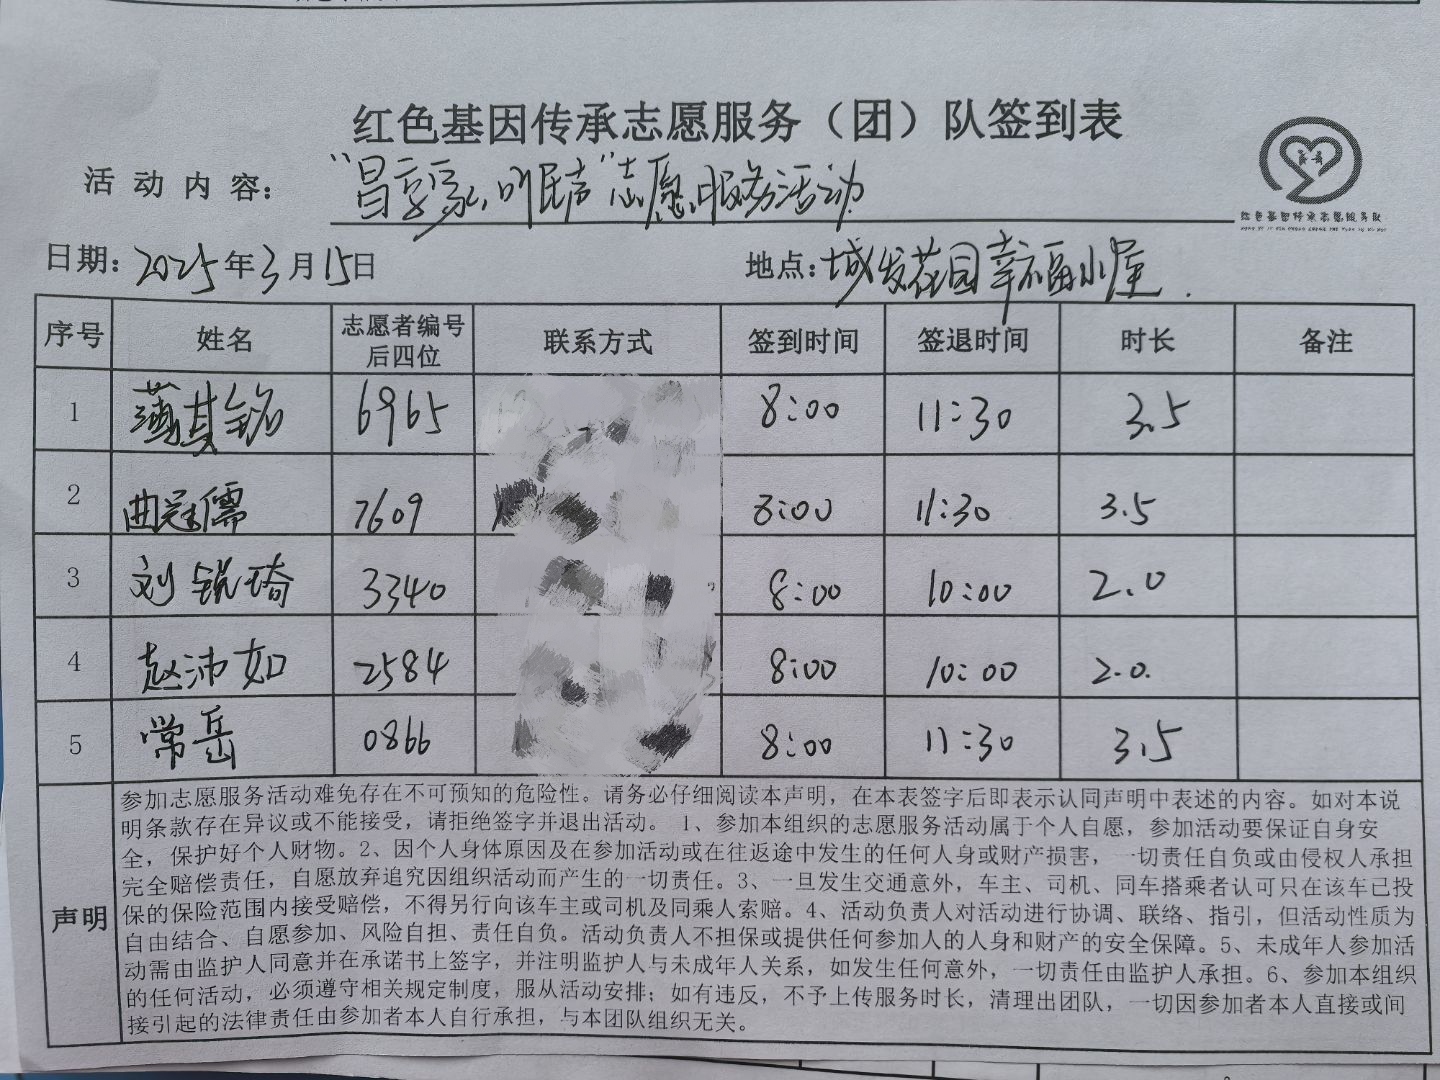 红色基因传承志愿服务（团）队签到表
活动内容：“冒享家，听民声”志愿服务活动
红色基因传承志愿服务队
日期：2025年3月15日 地点：城发花园幸福小屋.
序号 姓名 志愿者编号后四位 联系方式 签到时间 签退时间 时长 备注
1 薄其铭 6965 8:00 11:30 3.5
2 曲冠儒 7609 8:00 11:30 3.5
3 刘锐琦 3340 8:00 10:00 2.0
4 赵沛如 2584 8:00 10:00 2.0.
5 常岳 0866 8:00 11:30 3.5
声明
参加志愿服务活动难免存在不可预知的危险性。请务必仔细阅读本声明，在本表签字后即表示认同声明中表述的内容。如对本说
明条款存在异议或不能接受，请拒绝签字并退出活动。 1、参加本组织的志愿服务活动属于个人自愿，参加活动要保证自身安
全，保护好个人财物。2、因个人身体原因及在参加活动或在往返途中发生的任何人身或财产损害，一切责任自负或由侵权人承担
完全赔偿责任，自愿放弃追究因组织活动而产生的一切责任。3、一旦发生交通意外，车主、司机、同车搭乘者认可只在该车已投
保的保险范围内接受赔偿，不得另行向该车主或司机及同乘人索赔。4、活动负责人对活动进行协调、联络、指引，但活动性质为
自由结合、自愿参加、风险自担、责任自负。活动负责人不担保或提供任何参加人的人身和财产的安全保障。5、未成年人参加活
动需由监护人同意并在承诺书上签字，并注明监护人与未成年人关系，如发生任何意外，一切责任由监护人承担。6、参加本组织
的任何活动，必须遵守相关规定制度，服从活动安排；如有违反，不予上传服务时长，清理出团队，一切因参加者本人直接或间
接引起的法律责任由参加者本人自行承担，与本团队组织无关。